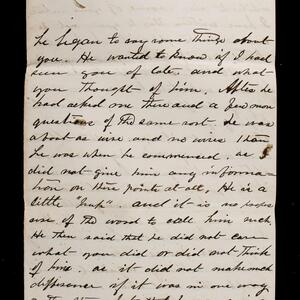 he began to say some things about
you. He wanted to know if I had
seen you of late, and what
you thought of him. After he
had asked me these and a few more
questions of the same sort. he was
about as wise and no wiser than
he was when he commenced. as I
did not give him any informa-
tion on those points at all, He is a
little "pup". and it is no
use of the word to call him such.
He then said that he did not care
what you did or did not think
of him. as it did not make much
difference if it was in one way